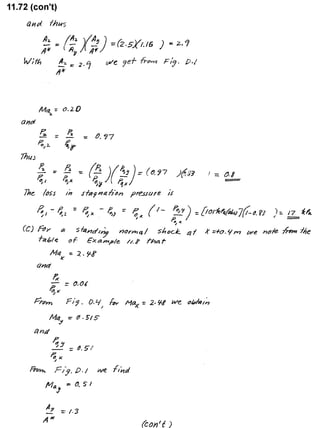 11.72 (con't)
and thus
A₂/A* = (A₂/A_y)(A_y/A*) = (2.5)(1.16) = 2.9
With A₂/A* = 2.9 we get from Fig. D.1
Ma₂ = 0.20
and
p₂/p₀,₂ = p₂/p₀,y = 0.97
Thus
p₂/p₀,₁ = p₂/p₀,x = (p₂/p₀,y)(p₀,y/p₀,x) = (0.97)( ) = 0.8
The loss in stagnation pressure is
p₀,₁ - p₀,₂ = p₀,x - p₀,y = p₀,x (1 - p₀,y/p₀,x) = [101 kPa (abs)](1-0.83) = 17 kPa
(c) For a standing normal shock at x = +0.4 m we note from the
table of Example 11.8 that
Ma_x = 2.48
and
p_x/p₀,x = 0.06
From Fig. D.4, for Ma_x = 2.48 we obtain
Ma_y = 0.515
and
p₀,y/p₀,x = 0.51
From Fig. D.1 we find
Ma_y = 0.51
A_y/A* = 1.3
(con't)